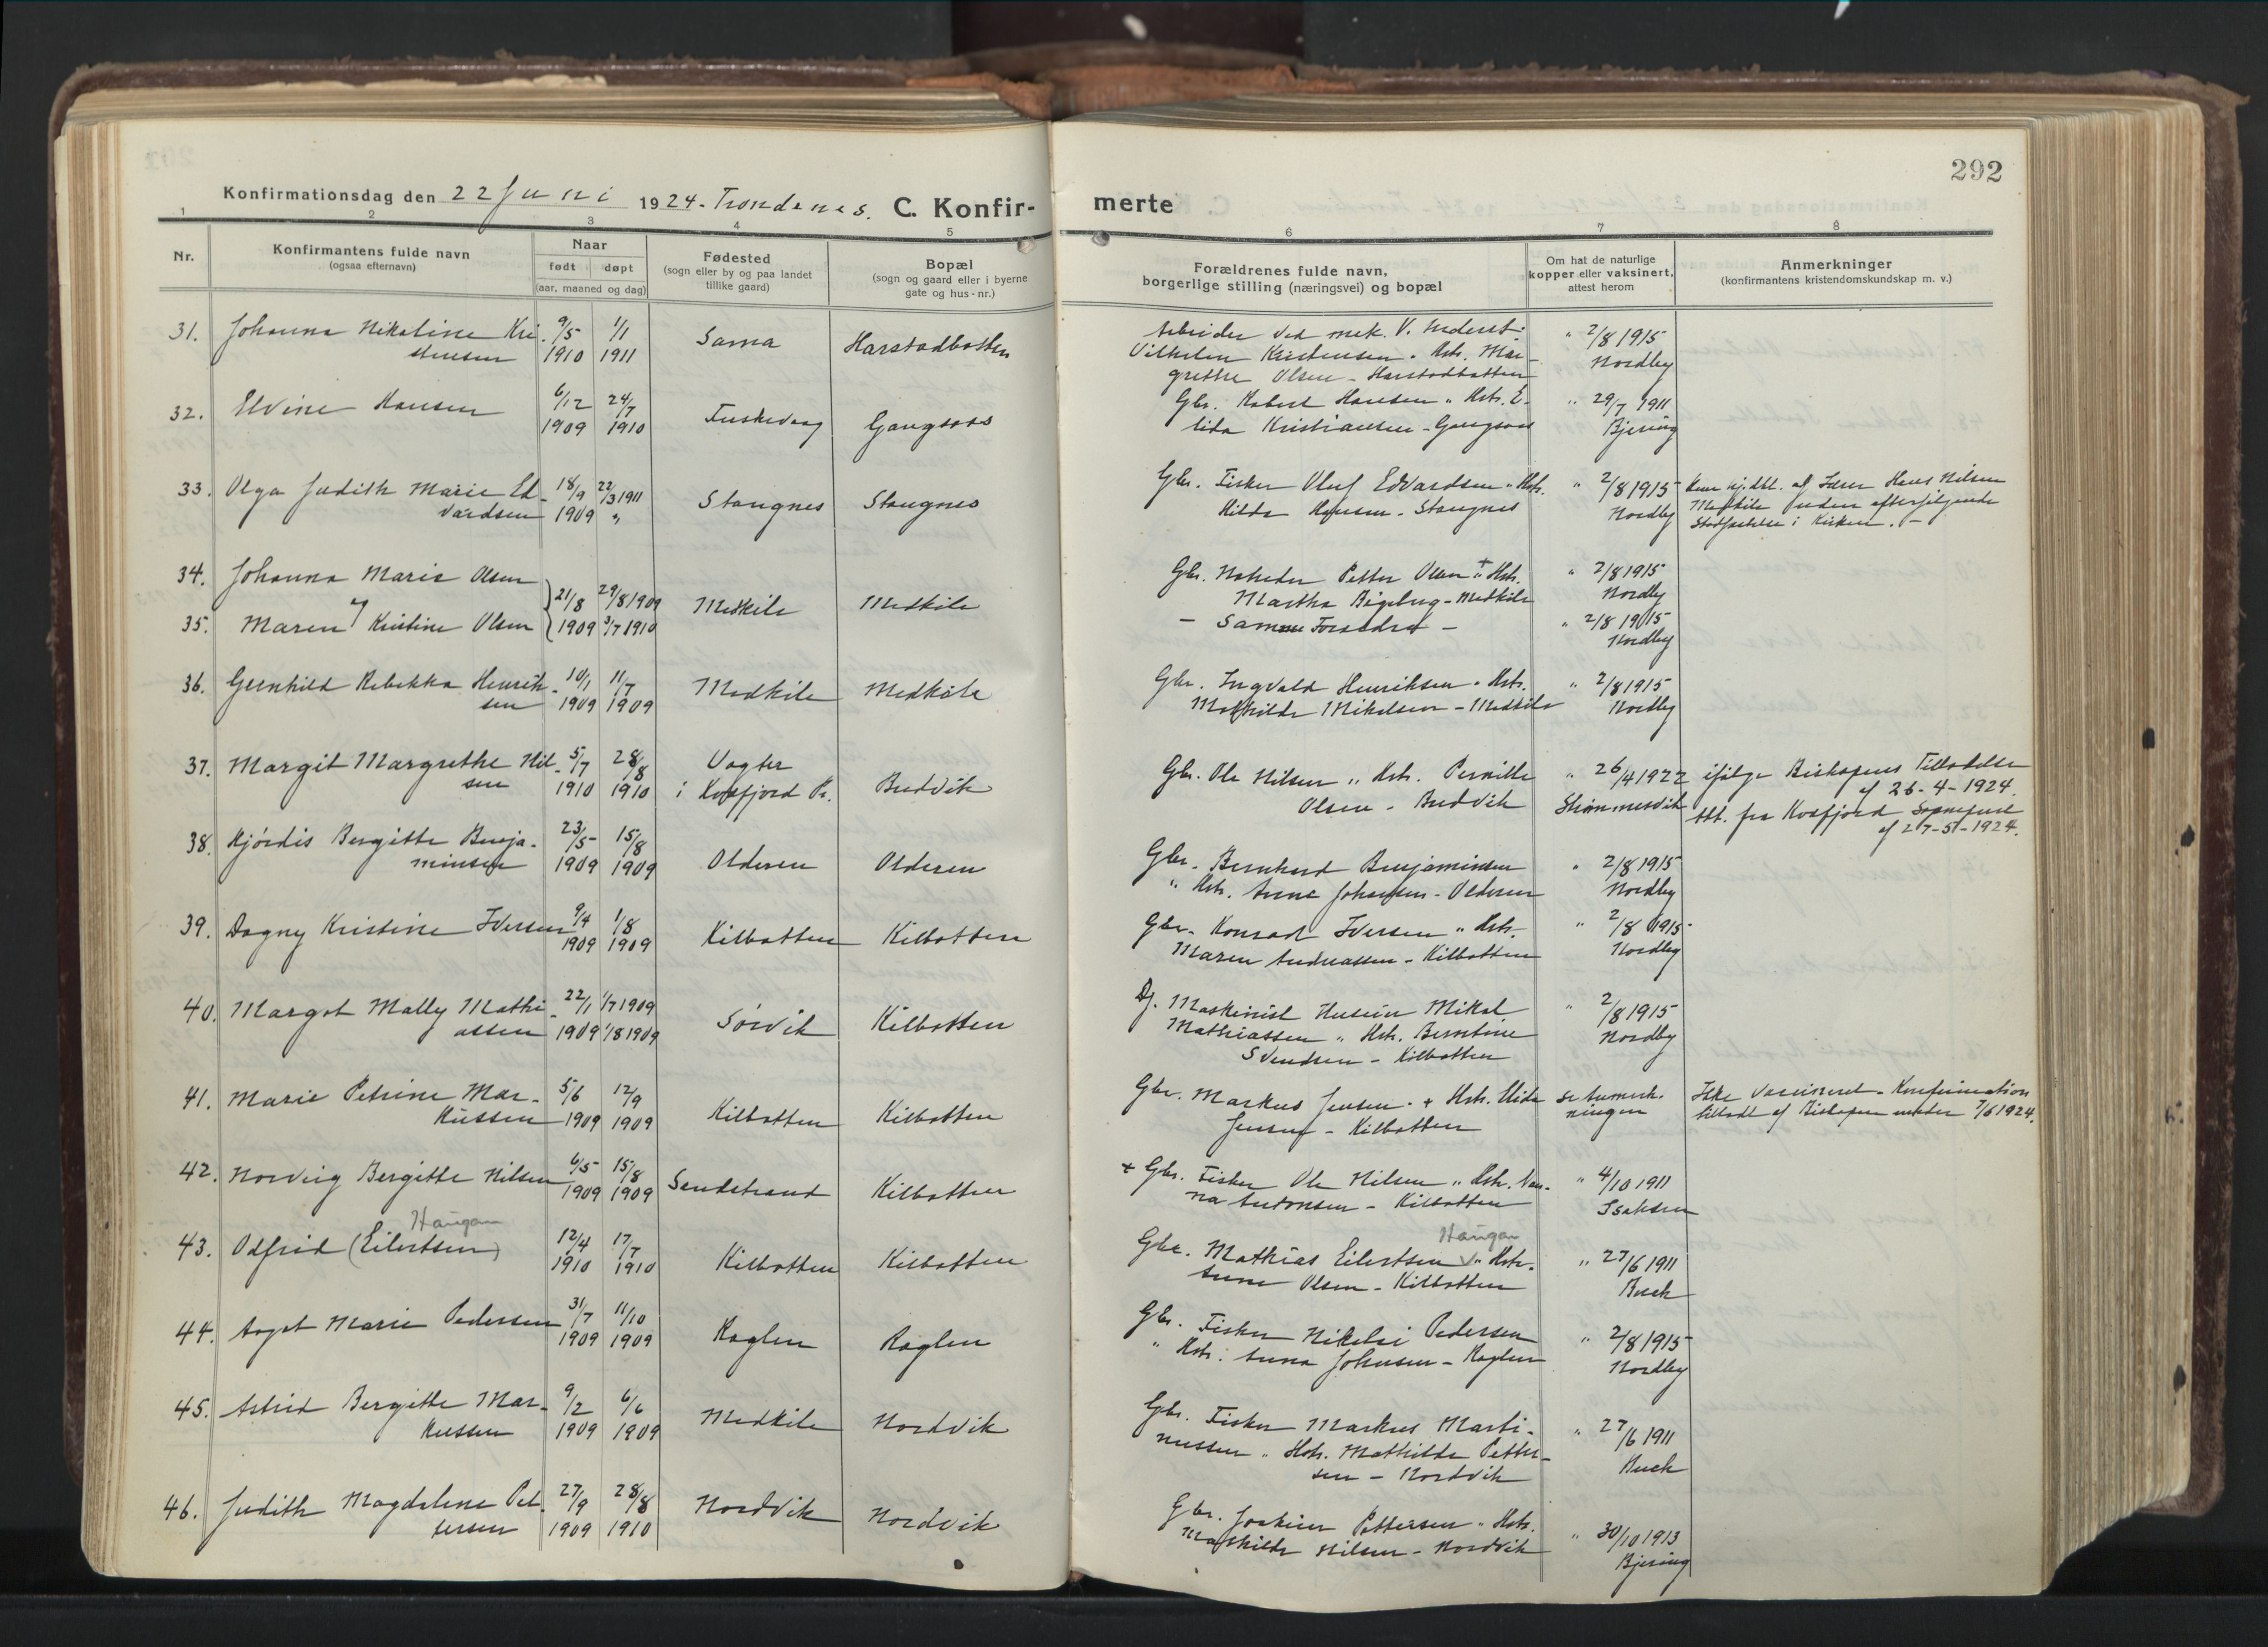 292
Konfirmationsdag den 22 Juni 1924. Trondenes. C. Konfir-
merte
1 2 3 4 5 6 7 8
Nr.
Konfirmantens fulde navn
(ogsaa efternavn)
Naar
født døpt
(aar, maaned og dag)
Fødested
(sogn eller by og paa landet
tillike gaard)
Bopæl
(sogn og gaard eller i byerne
gate og hus-nr.)
Forældrenes fulde navn,
borgerlige stilling (næringsvei) og bopæl
Om hat de naturlige
kopper eller vaksinert,
attest herom
Anmerkninger
(konfirmantens kristendomskundskap m. v.)
31. Johanna Nikoline Kri-
stensen
9/5 1910 1/1 1911
Sama
Harstadbotten
Arbeider ved mek. V.
Vilhelm Kristensen. Hstr. Mar-
grethe Olsen - Harstadbotten
" 2/8 1915
Nordby
32. Elvine Hansen
6/12 1909 24/7 1910
Fuskevaag
Gangsaas
Gbr. Robert Hansen " Hstr. E-
lida Kristiansen - Gangsaas
" 29/7 1911
Bjering
33. Olga Judith Marie Ed-
vardsen
18/9 1909 22/3 1911 "
Stangnes
Stangnes
Gbr. Fisker Oluf Edvardsen " Hstr.
Hilda Hansen - Stangnes
" 2/8 1915
Nordby
Kun hj.dbt. af Lærer Hans Nilsen
Medkila uden efterfølgende
Stadfæstelse i Kirken. -
34. Johanna Marie Olsen
og
35. Maren Kristine Olsen
21/8 1909 29/8 1909 3/7 1910
Medkila
Medkila
Gbr. Petter Olsen + " Hstr.
Martha - Medkila
- Samme Forældre -
" 2/8 1915
Nordby
" 2/8 1915
Nordby
36. Gunhild Rebekka Henrik-
sen
10/1 1909 11/7 1909
Medkila
Medkila
Gbr. Ingvald Henriksen " Hstr.
Mathilde Mikelsen - Medkila
" 2/8 1915
Nordby
37. Margit Margrethe Nil-
sen
5/7 1910 28/8 1910
Vagter
i Kvæfjord Pr.
Budvik
Gbr. Ole Nilsen " Hstr. Pernille
Olsen - Budvik
" 26/4 1922
ifølge Biskopens Tilladelse
af 26-4-1924.
Att. fra Kvæfjord Sogneprest
af 27-5-1924.
38. Hjørdis Bergitte Benja-
minsen
23/5 1909 15/8 1909
Olderen
Olderen
Gbr. Bernhard Benjaminsen
" Hstr. Anne Johansen - Olderen
" 2/8 1915
Nordby
39. Dagny Kristine Iversen
9/4 1909 1/8 1909
Kilbotten
Kilbotten
Gbr. Konrad Iversen " Hstr.
Maren Andreassen - Kilbotten
" 2/8 1915
Nordby
40. Margot Mally Mathi-
assen
22/1 1909 1/7 1909 1/8 1909
Sørvik
Kilbotten
Dj. Maskinist Huseier Mikal
Mathiassen " Hstr. Berntine
Svendsen - Kilbotten
" 2/8 1915
Nordby
41. Marie Petrine Mar-
kussen
5/6 1909 12/9 1909
Kilbotten
Kilbotten
Gbr. Markus Jensen + Hstr. Elida
Jensen - Kilbotten
se Anmerk-
ningen
Ikke vaccineret - Konfirmation
tilladt af Biskopen under 7/6 1924.
42. Norveig Bergitte Nilsen
6/5 1909 15/8 1909
Sandstrand
Kilbotten
+ Gbr. Fisker Ole Nilsen " Hstr. Nan-
na Antonsen - Kilbotten
" 4/10 1911
Isaksen
43. Odfrid (Eilertsen)
Haugan
12/4 1910 17/7 1910
Kilbotten
Kilbotten
Haugan
Gbr. Mathias Eilertsen " Hstr.
Anne Olsen - Kilbotten
" 27/6 1911
Buck
44. Aagot Marie Pedersen
31/7 1909 11/10 1909
Raglen
Raglen
Gbr. Fisker Nikolai Pedersen
" Hstr. Anna Johnsen - Raglen
" 2/8 1915
Nordby
45. Astrid Bergitte Mar-
kussen
9/2 1909 6/6 1909
Medkila
Nordvik
Gbr. Fisker Markus Marti-
nussen " Hstr. Mathilde Petter-
sen - Nordvik
" 27/6 1911
Buck
46. Judith Magdalene Pet-
tersen
27/9 1909 28/8 1910
Nordvik
Nordvik
Gbr. Joakim Pettersen " Hstr.
Mathilde Nilsen - Nordvik
" 30/10 1913
Bjering